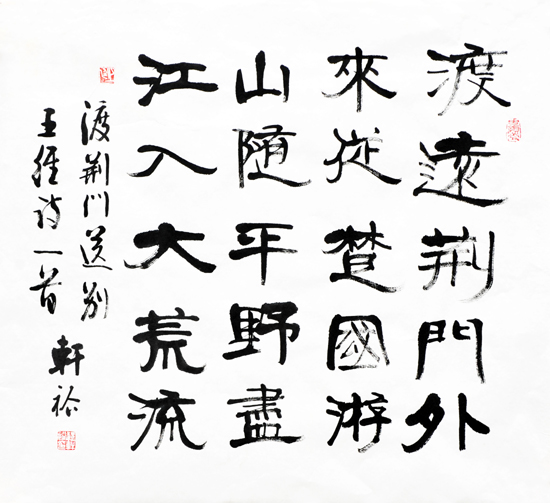 渡遠荆門外
來從楚國游
山随平野盡
江入大荒流
渡荆门送别
王維诗一首 軒裕